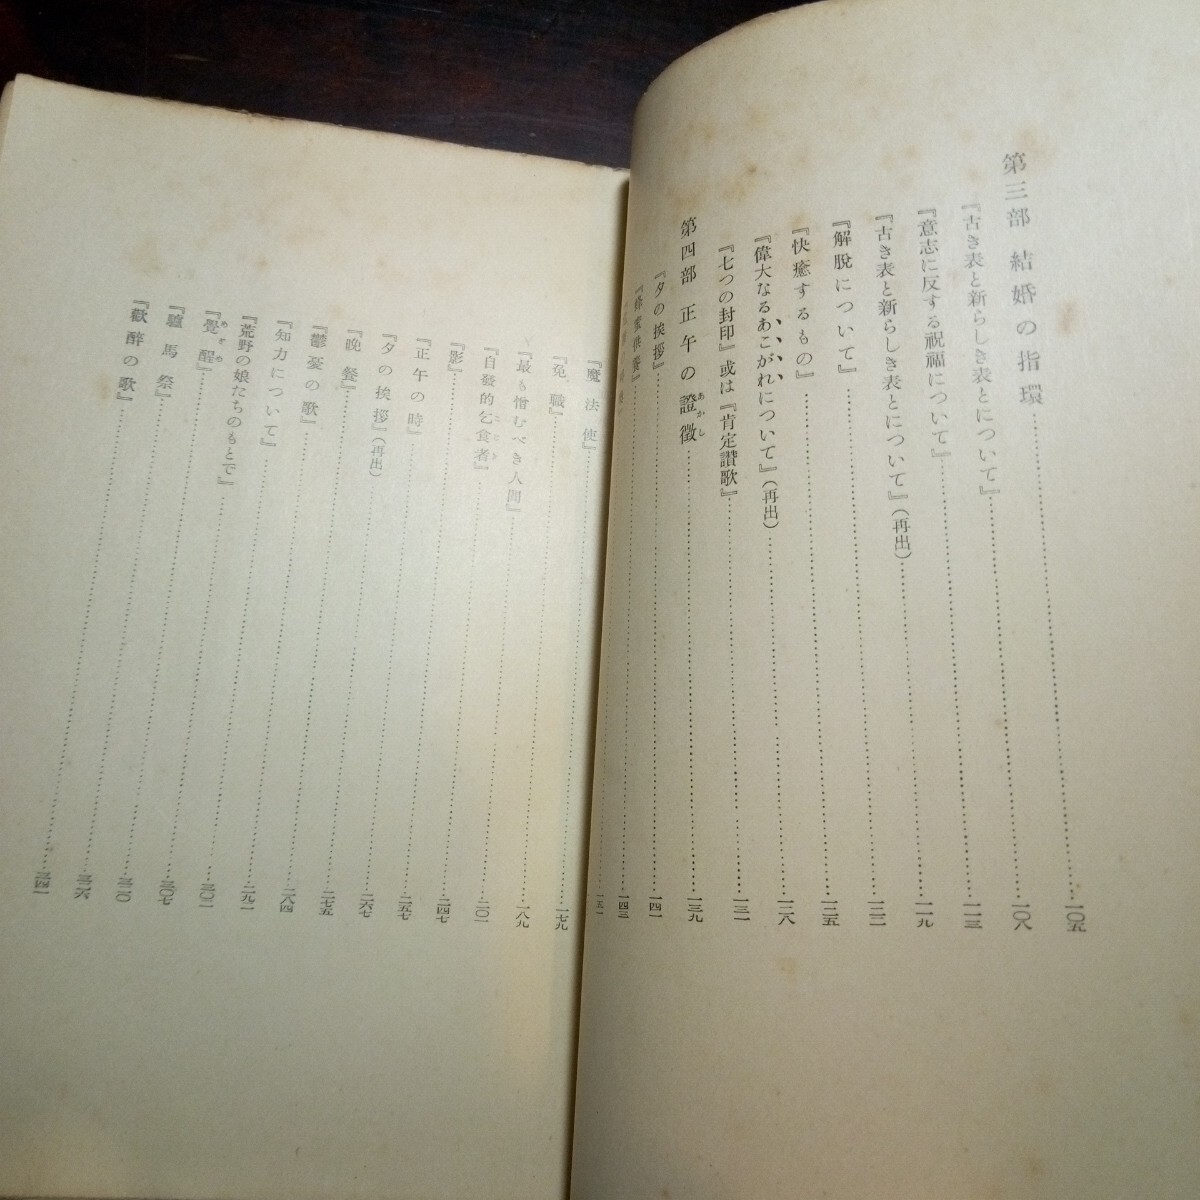 第三部 結婚の指環……一〇五
『古き表と新らしき表とについて』……一〇八
『意志に反する祝福について』……一一三
『古き表と新らしき表とについて』（再出）……一一九
『解脱について』……一二二
『快癒するもの』……一二五
『偉大なるあこがれについて』（再出）……一二八
『七つの封印』或は『肯定讃歌』……一三一
第四部 正午の證徴……一三九
あかし
『夕の挨拶』……一四一
『蜂蜜供養』……一四三
……一五一
『魔法使』……一七九
『免職』……一八九
『最も憎むべき人間』……二〇一
『自發的乞食者』……二四七
こじき
『影』……二五七
『正午の時』……二六七
『夕の挨拶』（再出）……二七五
『晩餐』……二八四
『鬱憂の歌』……二九一
『知力について』……三〇二
『荒野の娘たちのもとで』……三〇七
『覺醒』……三二〇
めざめ
『驢馬祭』……三二六
『歡醉の歌』……三四一